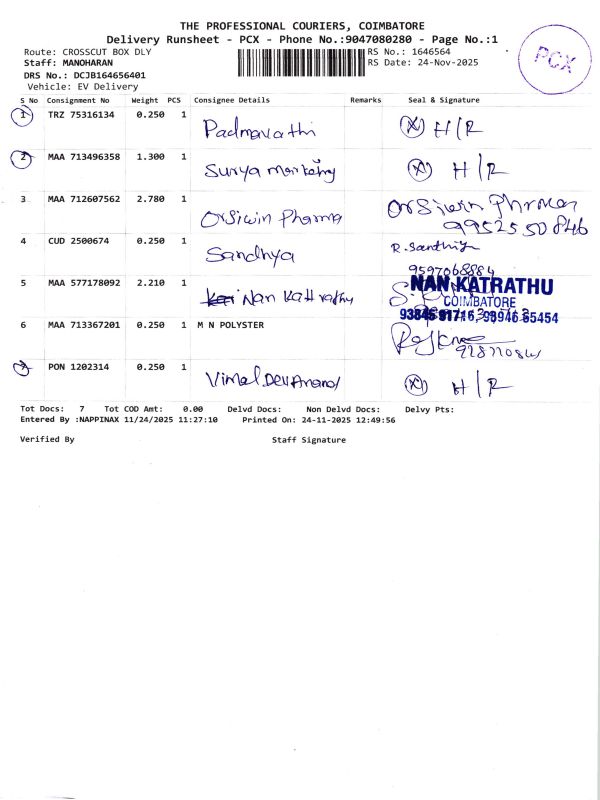 THE PROFESSIONAL COURIERS, COIMBATORE
Delivery Runsheet - PCX - Phone No.:9047080280 - Page No.:1
Route: CROSSCUT BOX DLY RS No.: 1646564
Staff: MANOHARAN RS Date: 24-Nov-2025
DRS No.: DCJB164656401
Vehicle: EV Delivery
PCX
S No Consignment No Weight PCS Consignee Details Remarks Seal & Signature
1 TRZ 75316134 0.250 1 Padmavathi (X) H/R
2 MAA 713496358 1.300 1 Surya Marketing (X) H/R
3 MAA 712607562 2.780 1 Orsiwin Pharma Orsiwin
9952550846
4 CUD 2500674 0.250 1 Sandhya R. Santhiya
9597068884
5 MAA 577178092 2.210 1 Nan Kattrathu NAN KATRATHU
COIMBATORE
6 MAA 713367201 0.250 1 M N POLYSTER
7 PON 1202314 0.250 1 Vimal Dev Anand (X) H/R
Tot Docs: 7 Tot COD Amt: 0.00 Delvd Docs: Non Delvd Docs: Delvy Pts:
Entered By :NAPPINAX 11/24/2025 11:27:10 Printed On: 24-11-2025 12:49:56
Verified By Staff Signature